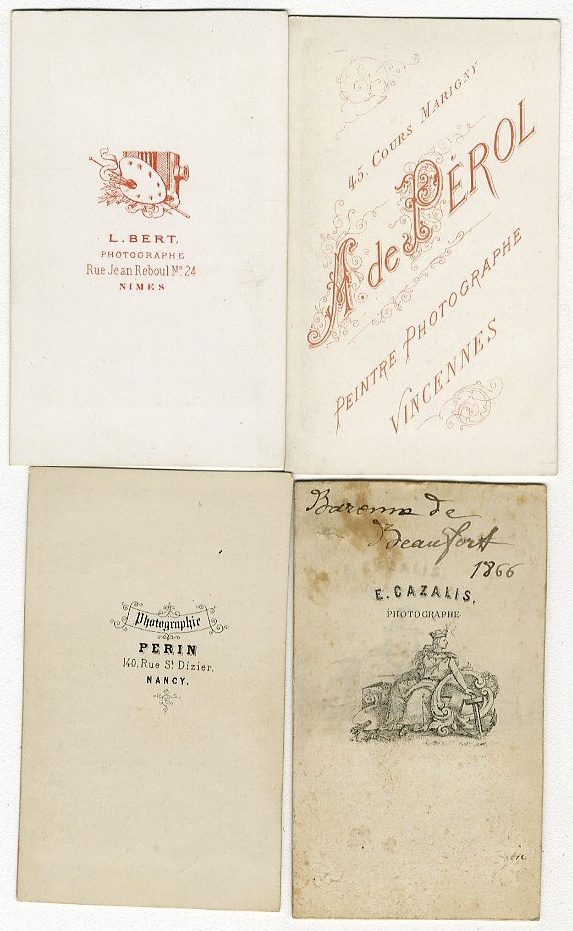 L. BERT.
PHOTOGRAPHE
Rue Jean Reboul Nº 24
NIMES
45, COURS MARIGNY
A. de PÉROL
PEINTRE PHOTOGRAPHE
VINCENNES
Photographie
PERIN
140, Rue St Dizier,
NANCY.
Baronne de
Beaufort
1866
E. CAZALIS,
PHOTOGRAPHE